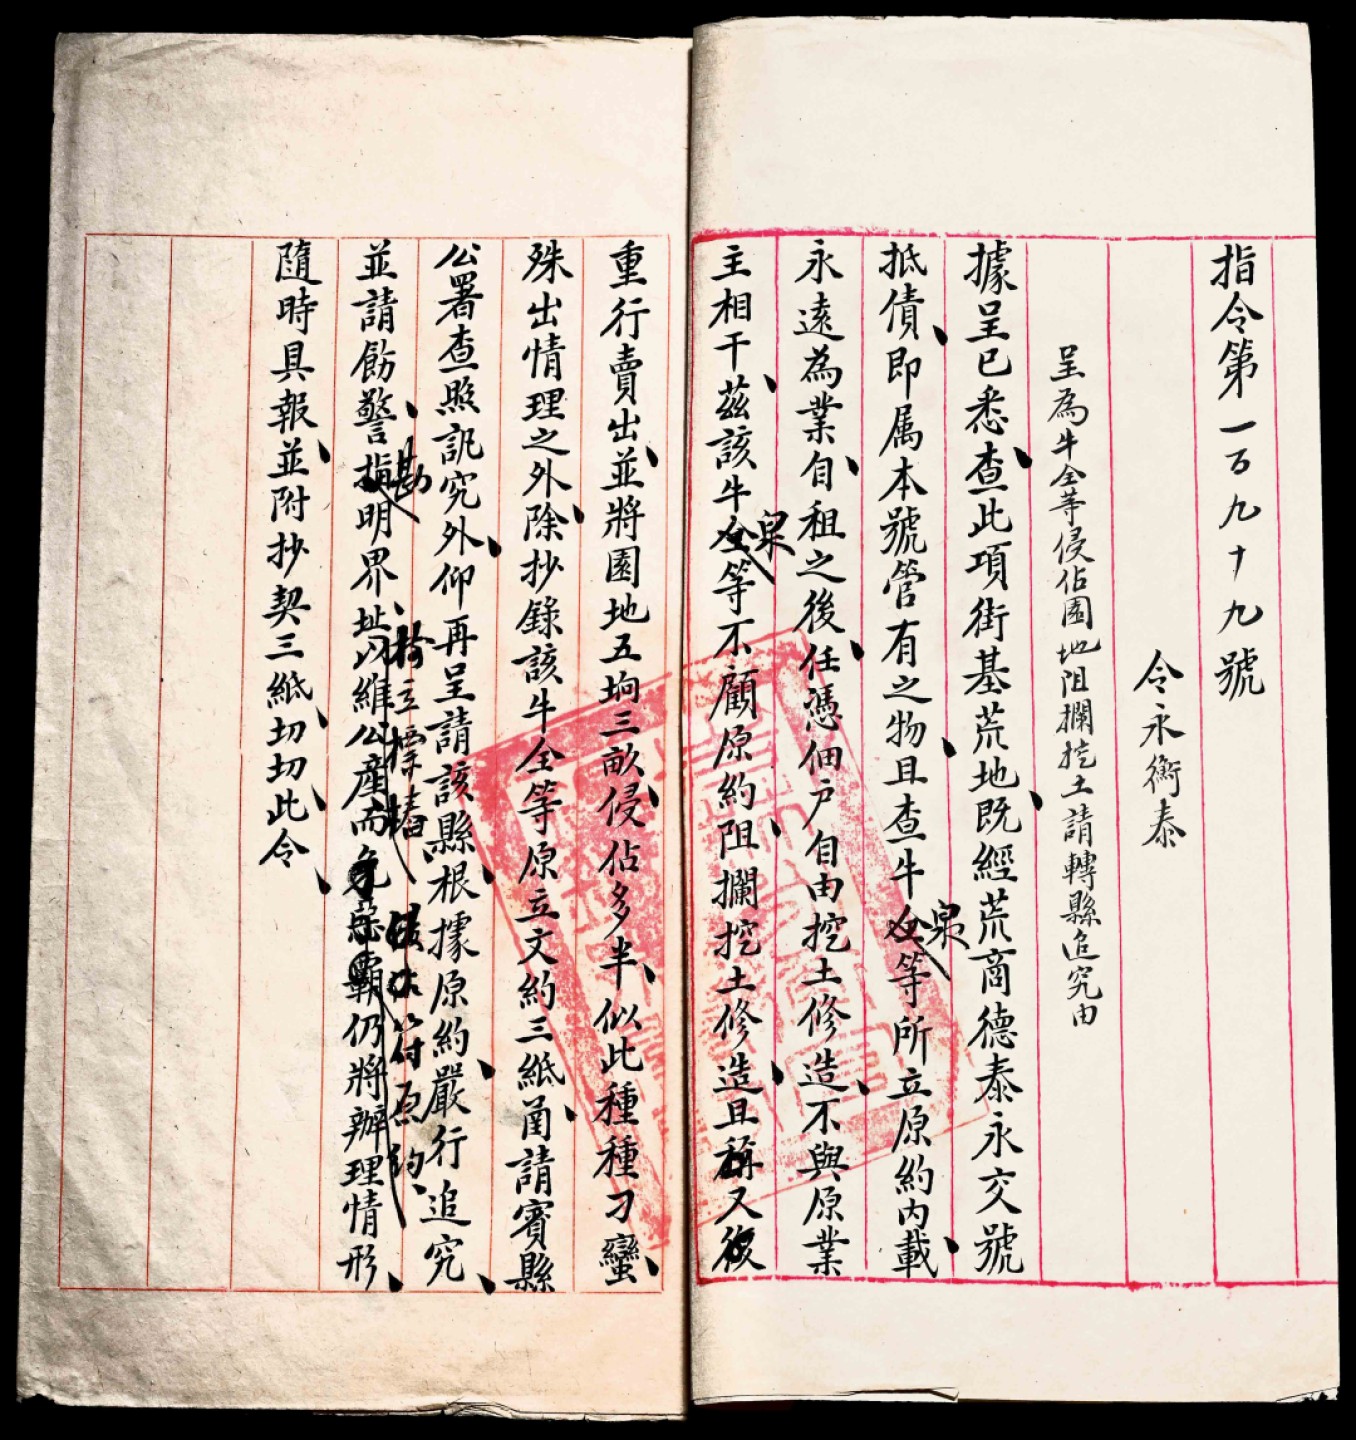 指令第一百九十九號
令永衡泰
呈為牛全等侵佔園地阻攔挖土請轉縣追究由
據呈已悉查此項街基荒地既經荒商德泰永交號
抵債即属本號管有之物且查牛全泉等所立原約内載
永遠為業自租之後任憑佃户自由挖土修造不與原業
主相干茲該牛全泉等不顧原約阻攔挖土修造且稱又復
重行賣出並將園地五垧三畝侵佔多半似此種種刁蠻
殊出情理之外除抄錄該牛全等原立文約三紙函請賓縣
公署查照訊究外仰再呈請該縣根據原約嚴行追究
勘
於立標樁
符原約
並請飭警指明界址以維公產而免惡霸仍將辦理情形
隨時具報並附抄契三紙切切此令